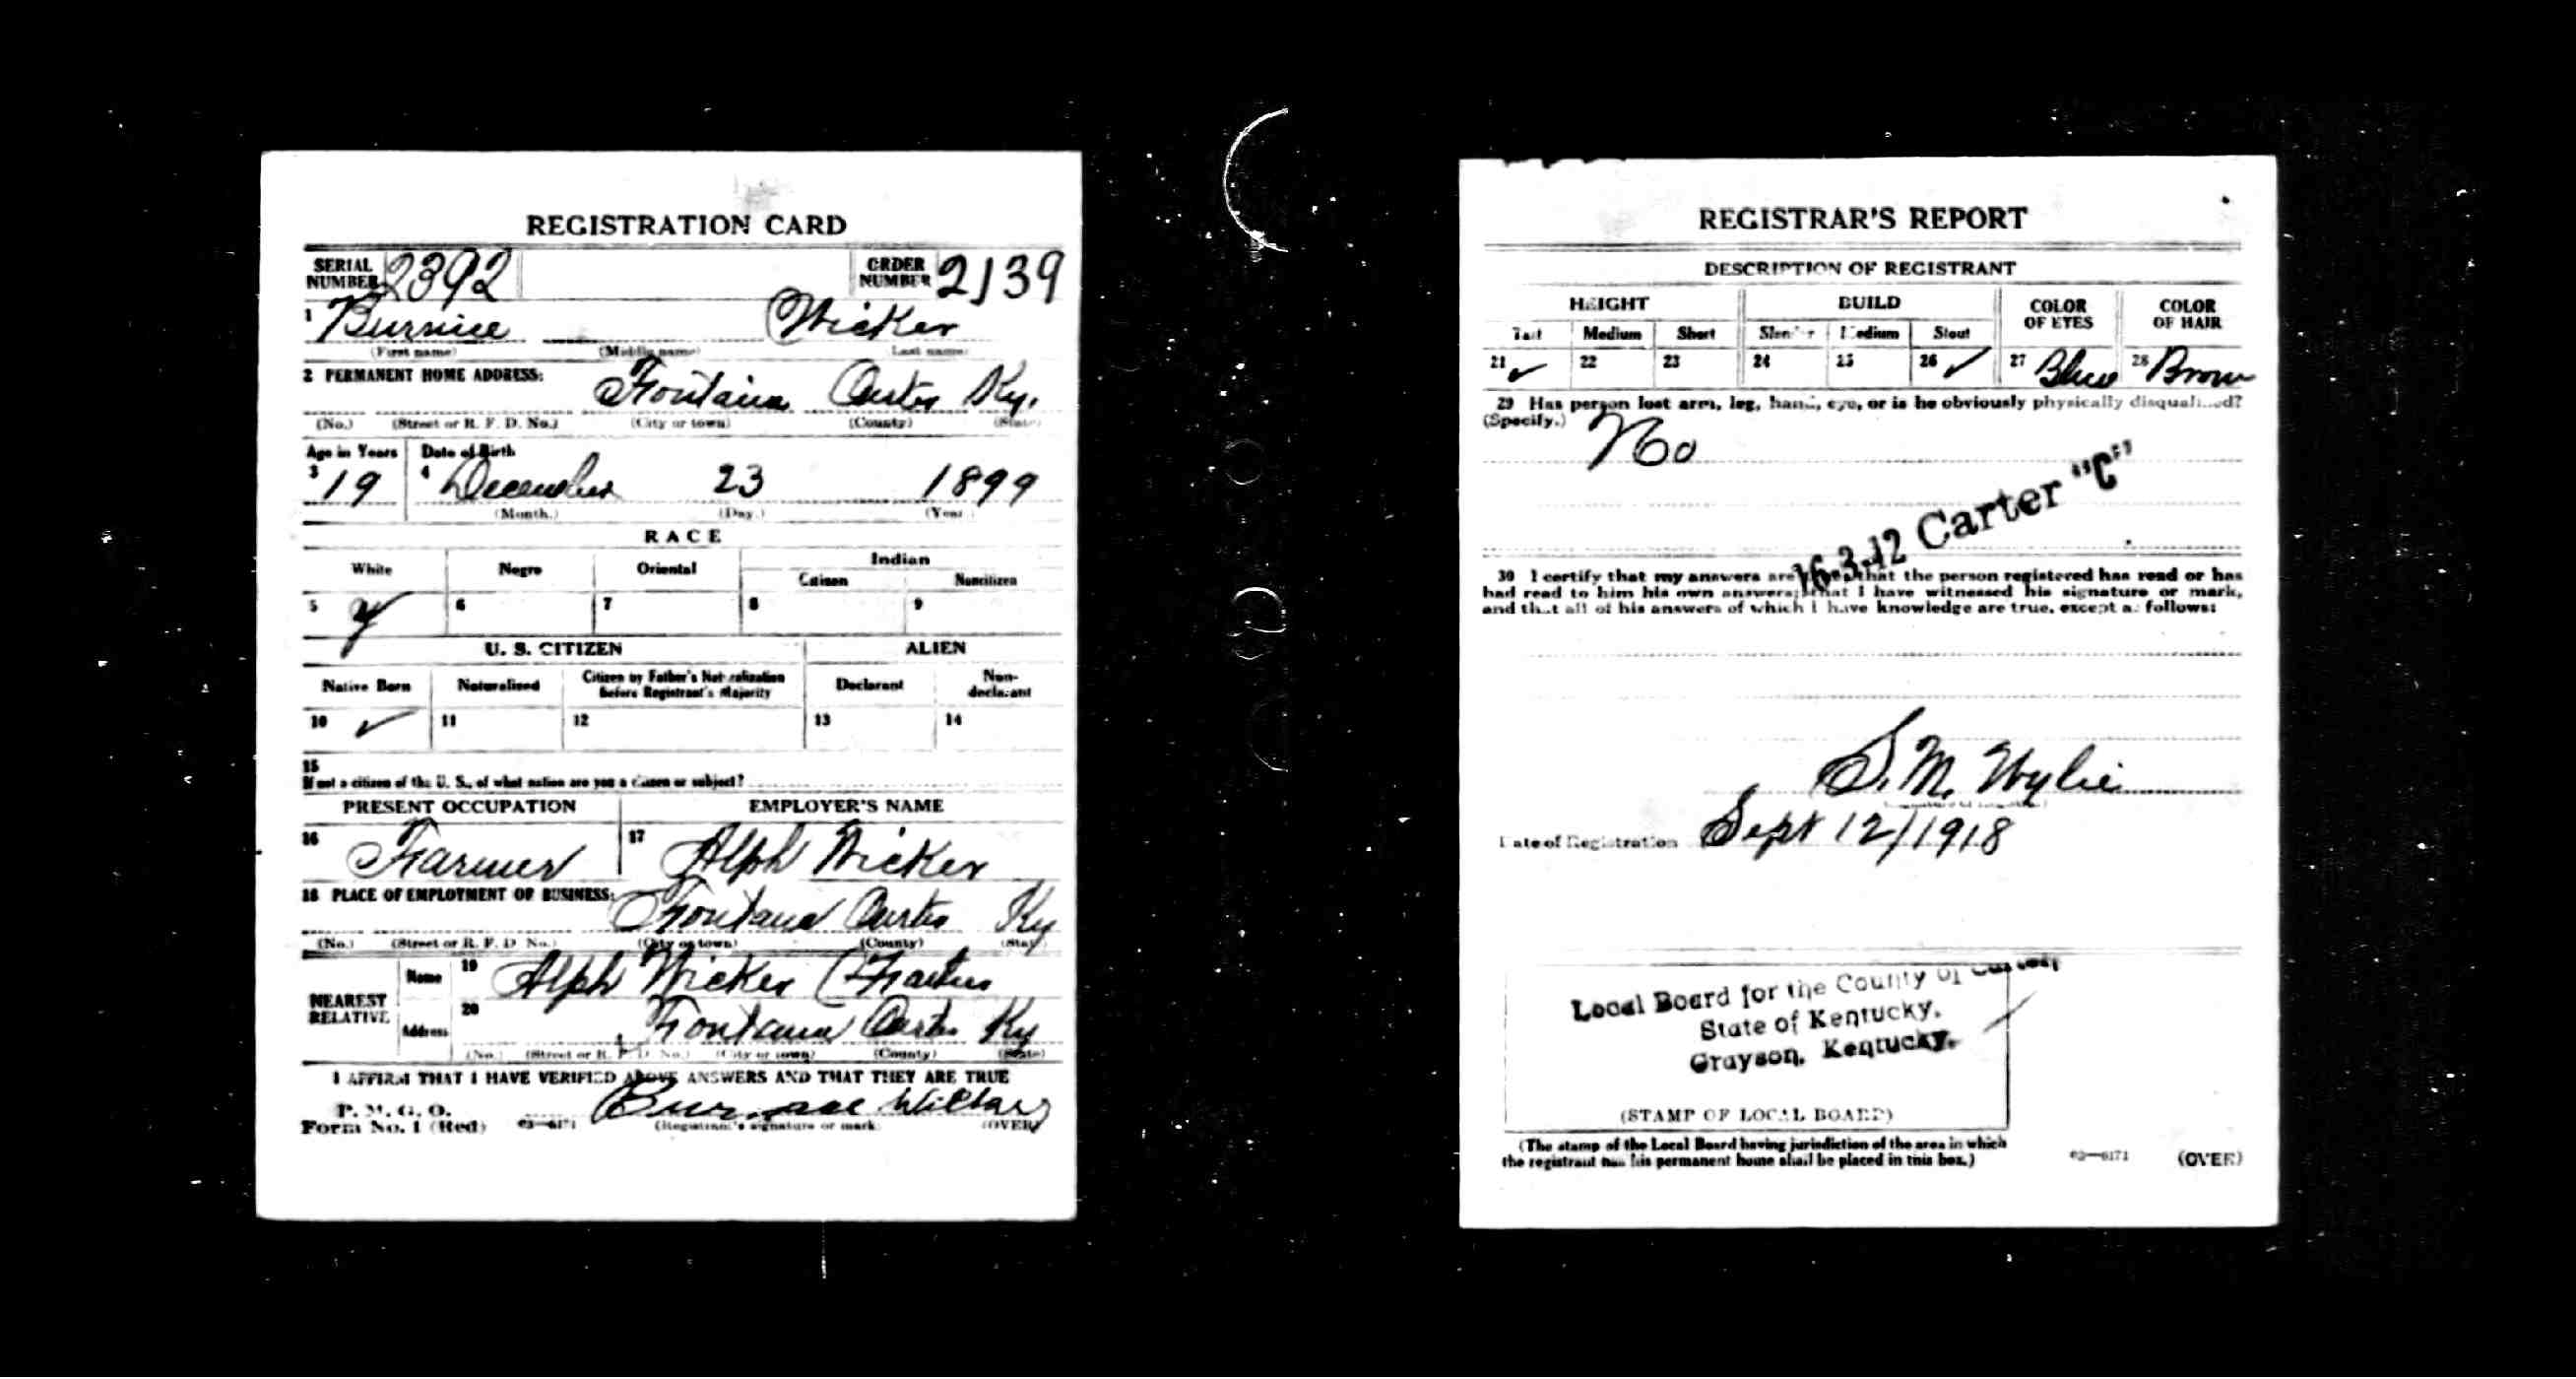 REGISTRATION CARD
SERIAL NUMBER 2392 ORDER NUMBER 2139
1 Burnice Wicker
(First name) (Middle name) Last name)
2 PERMANENT HOME ADDRESS: Fontana Carter Ky.
(No.) (Street or R. F. D. No.) (City or town) (County) (State)
Age in Years Date of Birth
3 19 4 December 23 1899
(Month.) (Day.) (Year.)
RACE
White Negro Oriental Indian
Citizen Noncitizen
5 y 6 7 8 9
U. S. CITIZEN ALIEN
Native Born Naturalized Citizen by Father's Naturalization before Registrant's Majority Declarant Non-declarant
10 ✓ 11 12 13 14
15
If not a citizen of the U. S., of what nation are you a citizen or subject?
PRESENT OCCUPATION EMPLOYER'S NAME
16 Farmer 17 Alph Wicker
18 PLACE OF EMPLOYMENT OF BUSINESS: Fontana Carter Ky
(No.) (Street or R. F. D. No.) (City or town) (County) (State)
NEAREST RELATIVE
Name 19 Alph Wicker (Father
Address 20 Fontana Carter Ky
(No.) (Street or R. F. D. No.) (City or town) (County) (State)
I AFFIRM THAT I HAVE VERIFIED ABOVE ANSWERS AND THAT THEY ARE TRUE
P. M. G. O.
Form No. 1 (Red) 03—6171 (Registrant's signature or mark) (OVER)
REGISTRAR'S REPORT
DESCRIPTION OF REGISTRANT
HEIGHT BUILD COLOR OF EYES COLOR OF HAIR
Tall Medium Short Slender Medium Stout
21 ✓ 22 23 24 25 26 ✓ 27 Blue 28 Brow
29 Has person lost arm, leg, hand, eye, or is he obviously physically disqualified?
(Specify.) No
16-3-12 Carter "C"
30 I certify that my answers are that the person registered has read or has
had read to him his own answers; that I have witnessed his signature or mark,
and that all of his answers of which I have knowledge are true, except as follows:
S. M. Wylie
Date of Registration Sept 12/1918
Local Board for the County of Carter
State of Kentucky.
Grayson, Kentucky.
(STAMP OF LOCAL BOARD)
(The stamp of the Local Board having jurisdiction of the area in which
the registrant has his permanent home shall be placed in this box.)
03—6171 (OVER)